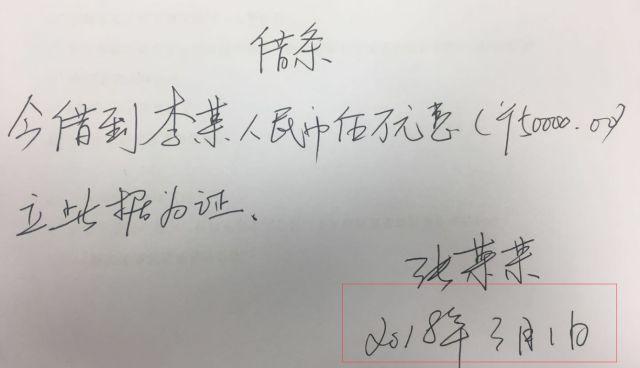 借条
今借到李某人民币伍万元整（¥50000.00）
立此据为证、
张某某
2018年3月1日